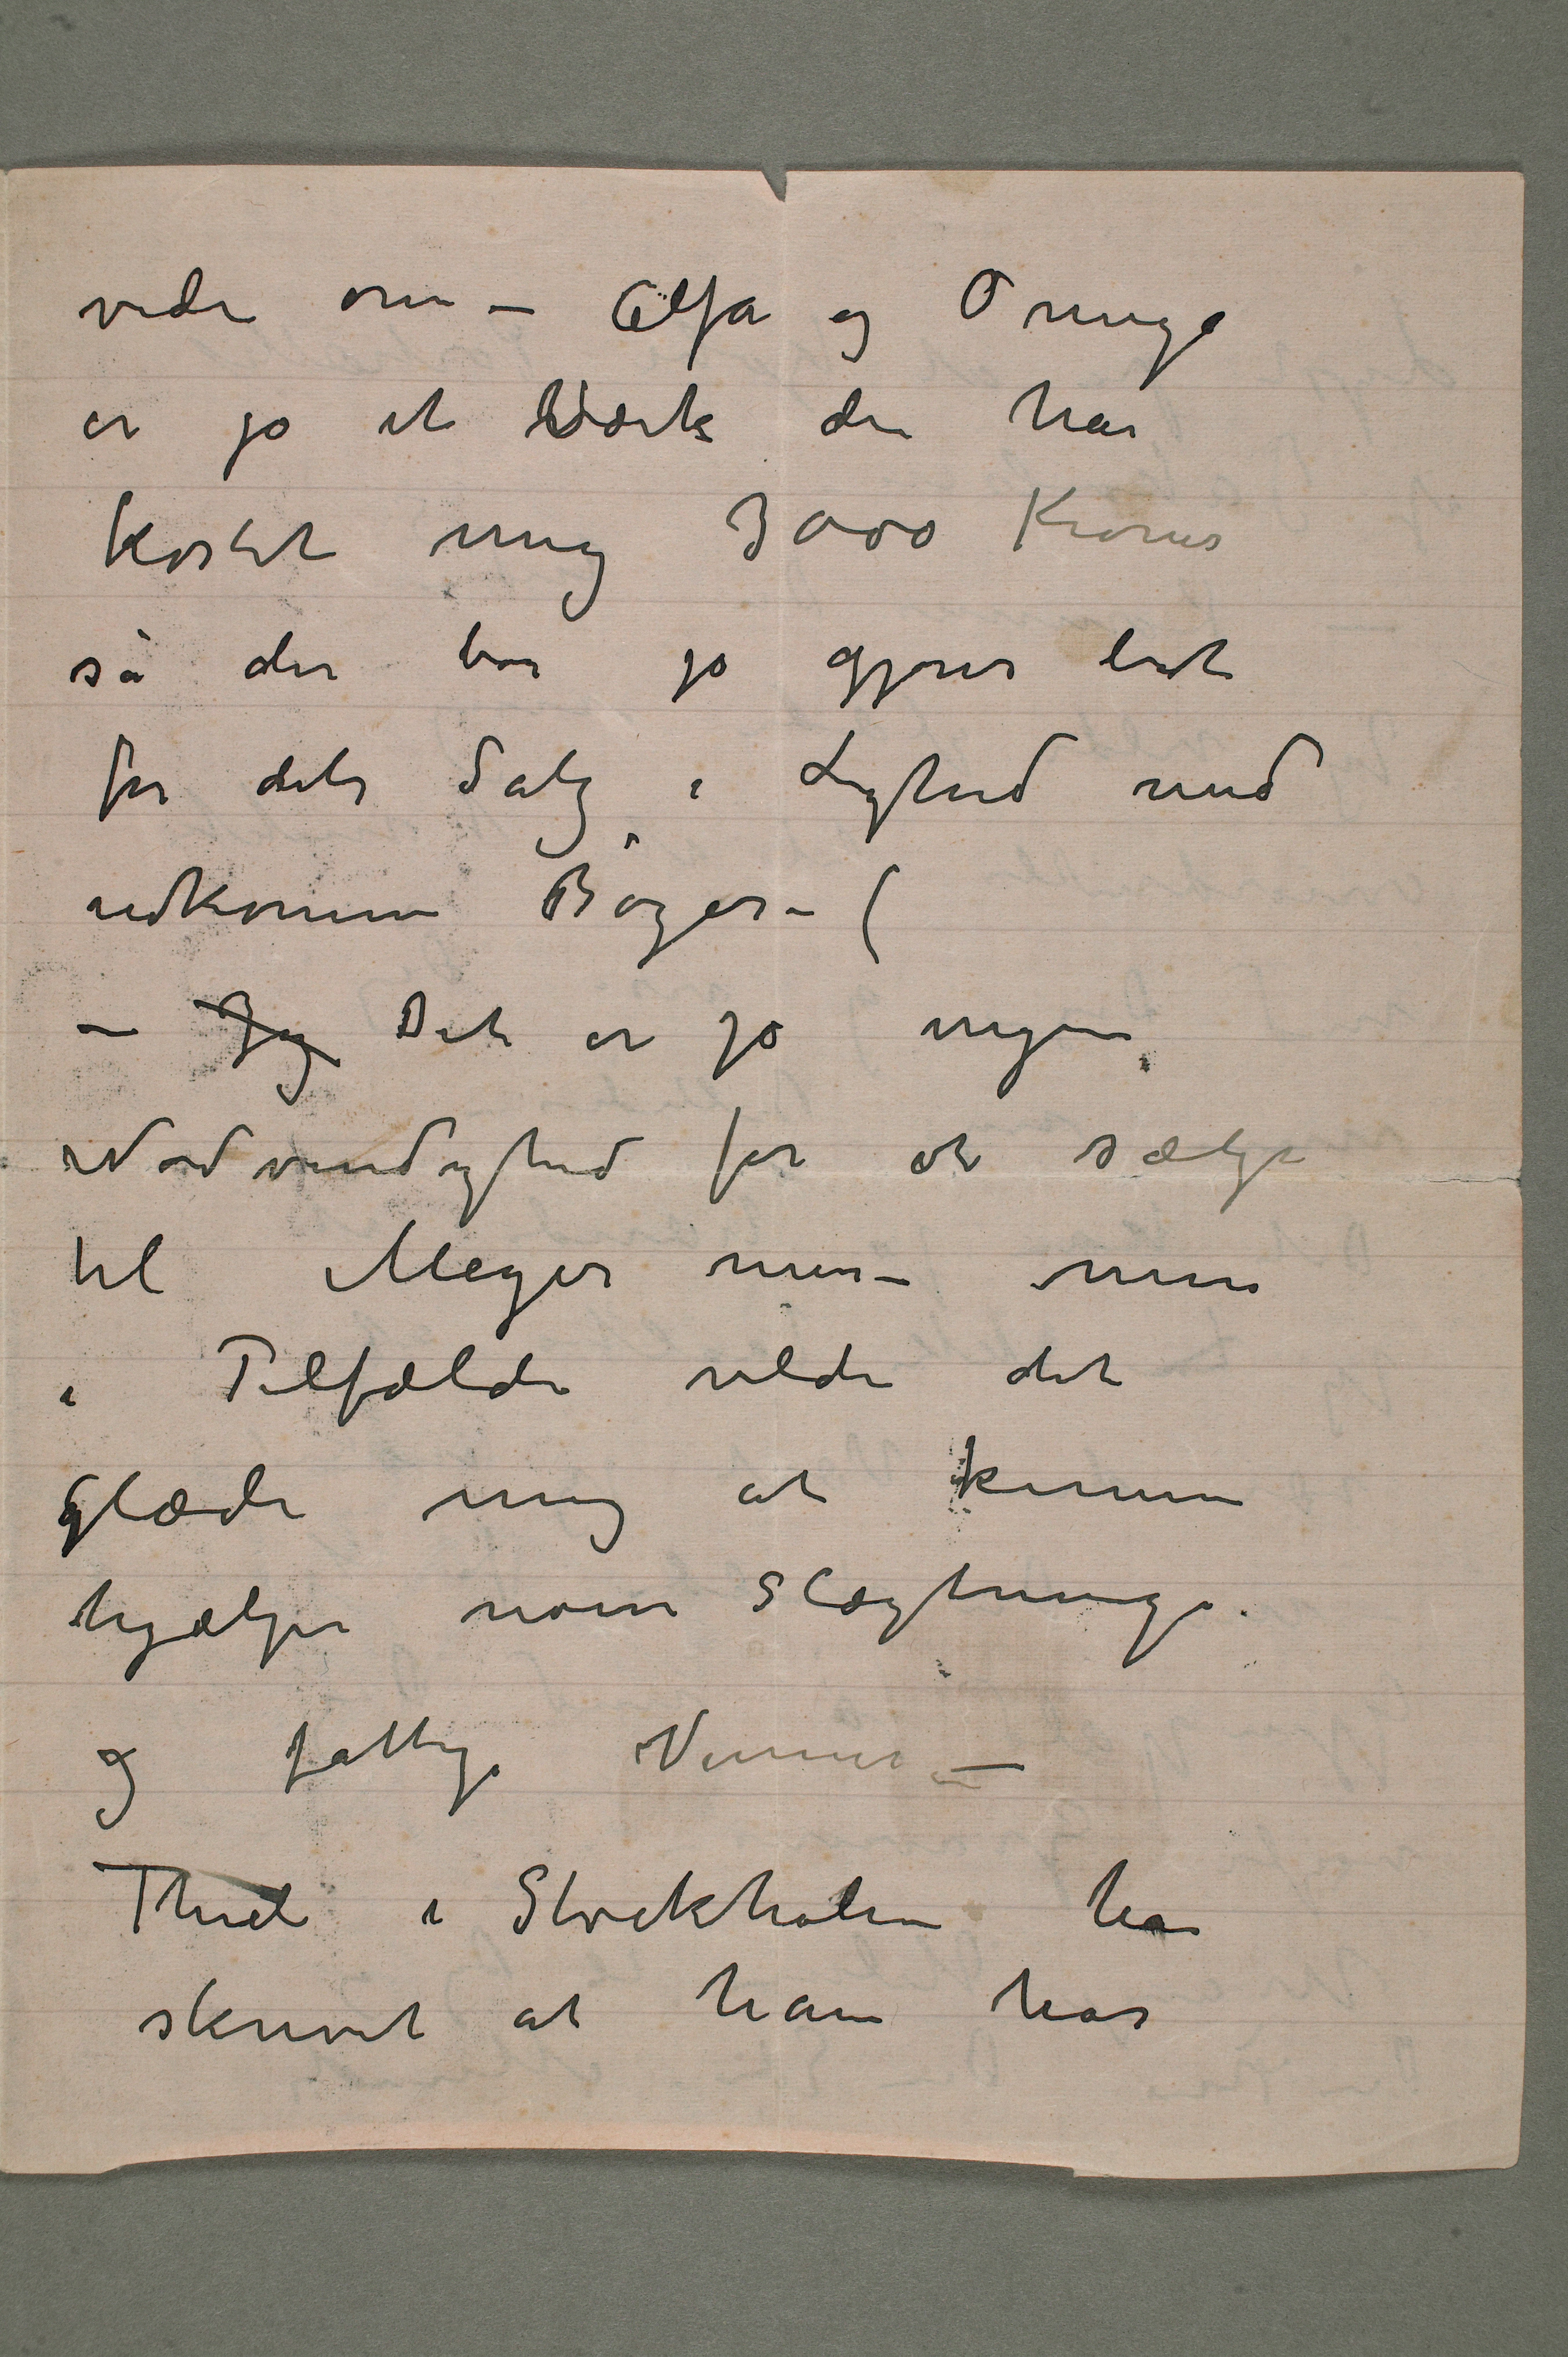 vide om – Alfa og Omega
er jo et Værk der har
kostet mig 3000 Kroner
så der bør jo gjøres lidt
for dets Salg i Lighed med
udkomne Bøger – (
– Jeg Det er jo ingen
Nødvendighed for at sælge
til Meyer mer – men
i Tilfælde vilde det
glæde mig at kunne
hjælpe noen Slægtninge
og fattige Venner –
Thiel i Stockholm har
skrevet at han har